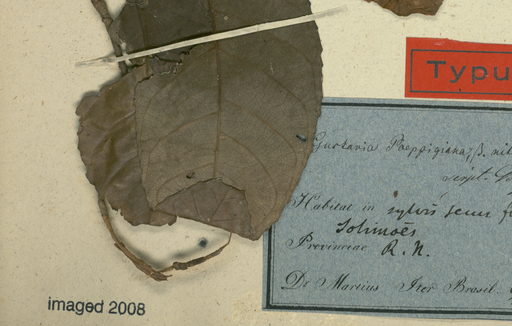 Typu
Gustavia Poeppigiana, β. nit
script.
Habitat in sylvis secus f
Solimoës
Provinciae R. N.
Dr Martius Iter Brasil.
imaged 2008